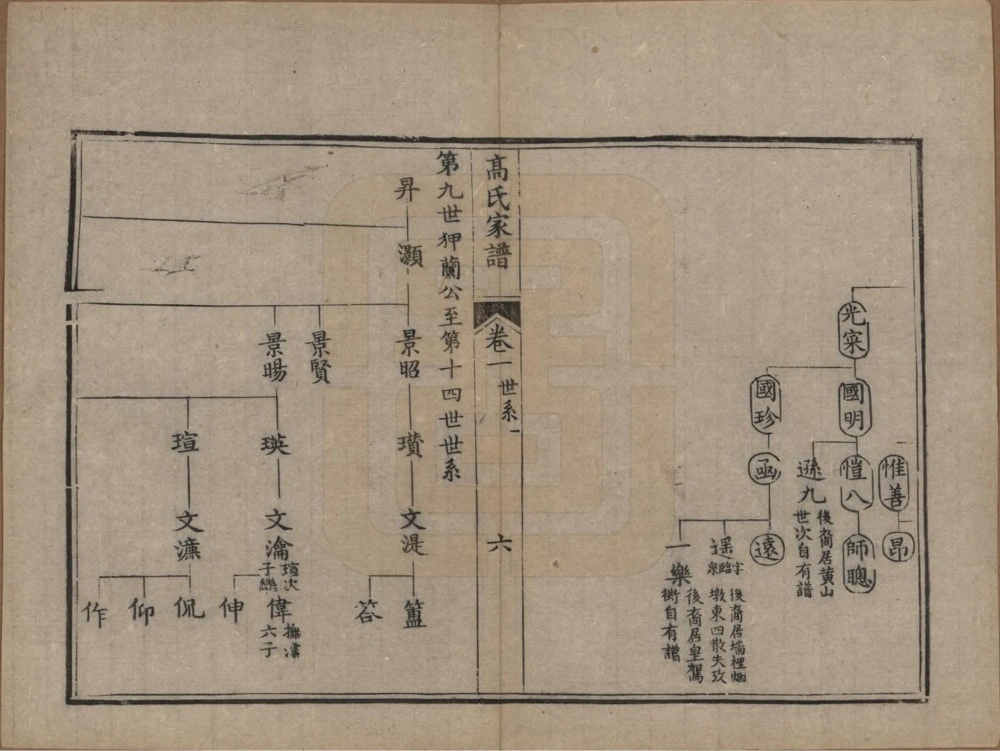 光寀
國明
國珍
惟善
愷八
遜九
後裔居黃山
世次自有譜
函
昂
師聰
遠
遥
字臨泉
後裔居墻裡畑
墩東四散失攷
一樂
後裔居皇駕
衖自有譜
高氏家譜
卷一
世系一
六
第九世狎蘭公至第十四世世系
昇
灝
景昭
景賢
景暘
瓚
瑛
瑄
文湜
文瀹
瑄次子繼
文濂
簠
荅
偉
撫濂六子
伸
侃
仰
作